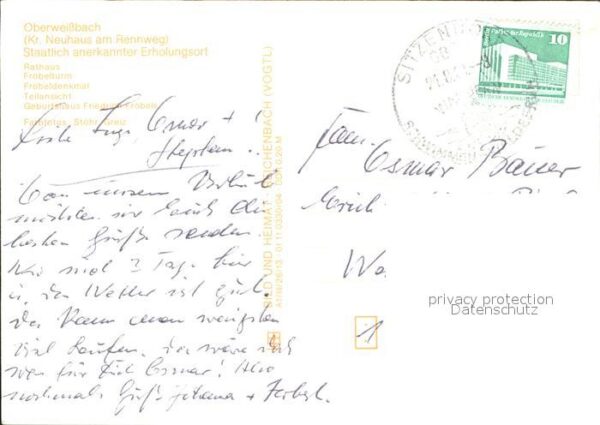 Oberweißbach
(Kr. Neuhaus am Rennweg)
Staatlich anerkannter Erholungsort
Rathaus
Fröbelturm
Fröbeldenkmal
Teilansicht
Geburtshaus Friedrich Fröbels
Farbfotos: Stöhr, Greiz
BILD UND HEIMAT REICHENBACH (VOGTL)
Liebe Inge, Osmar +
Stephan!
Von unserem Urlaub
möchten wir Euch die
besten Grüße senden.
Wir sind 3 Tage hier
u. das Wetter ist gut
da kann man wenigstens
viel laufen, das wäre
was für Dich Osmar! Also
nochmals Grüße +
SITZENDORF
10
Fam.
Osmar Bauer
Erich
privacy protection
Datenschutz
1